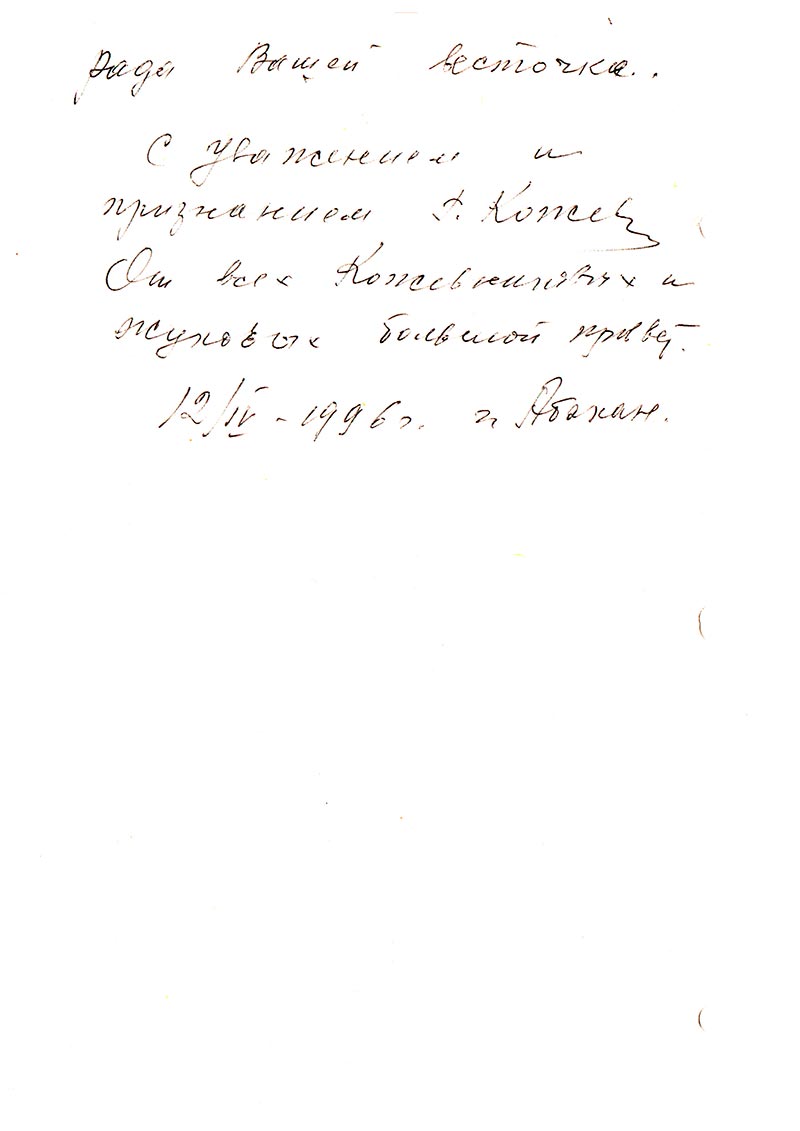 рада Вашей весточка..
С уважением и
признанием Г. Кожев
От всех Кожевниковых и
Жуковых большой привет.
12/IV - 1996 г. г. Абакан.